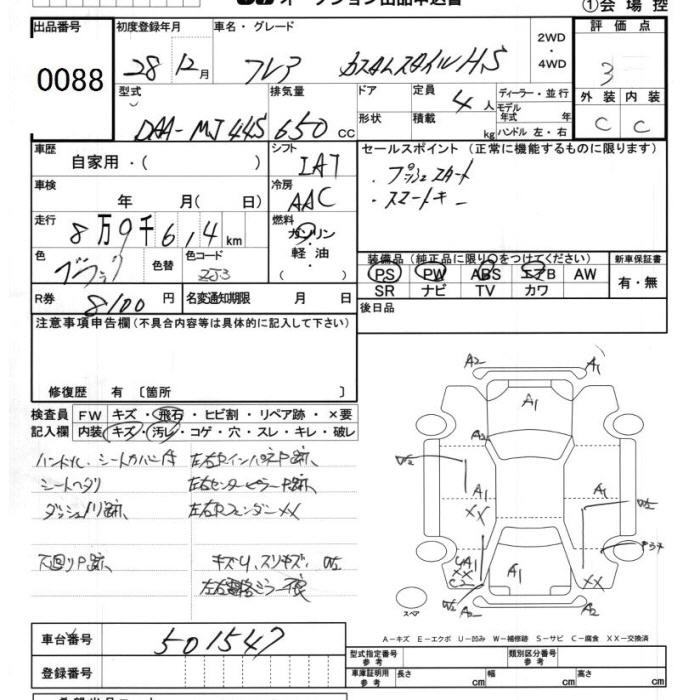 オークション出品申込書
①会場控
出品番号 0088
初度登録年月 28 12月
車名・グレード フレア カスタムスタイルHS
2WD・4WD
評価点 3
外装 C 内装 C
型式 DAA-MJ44S
排気量 650 cc
ドア 形状
定員 4人
積載 kg
ディーラー・並行
モデル年式 年
ハンドル 左・右
車歴 自家用・( )
シフト IAT
セールスポイント (正常に機能するものに限ります)
・プッシュスタート
・スマートキー
車検 年 月( 日)
冷房 AAC
走行 8万9千6,4 km
燃料 ガソリン 軽油 ・( )
色 ブラック 色替
色コード ZJ3
装備品(純正品に限り○をつけてください)
PS PW ABS エアB AW
SR ナビ TV カワ
新車保証書 有・無
R券 8100 円
名変通知期限 月 日
後日品
注意事項申告欄(不具合内容等は具体的に記入して下さい)
修復歴 有〔箇所 〕
検査員記入欄
FW キズ・飛石・ヒビ割・リペア跡・×要
内装 キズ・汚レ・コゲ・穴・スレ・キレ・破レ
シートヘタリ
左右センターピラーP跡、
左右Fフェンダー××
下廻りP跡、
A2 A1
A1
A2
W2
A1 A1 W2
××
××
C2
A1
××
W2 A2 A2
スペア
A-キズ E-エクボ U-凹み W-補修跡 S-サビ C-腐食 XX-交換済
車台番号 501547
登録番号
型式指定番号 参考
類別区分番号 参考
車庫証明用 参考 長さ cm 幅 cm 高さ cm